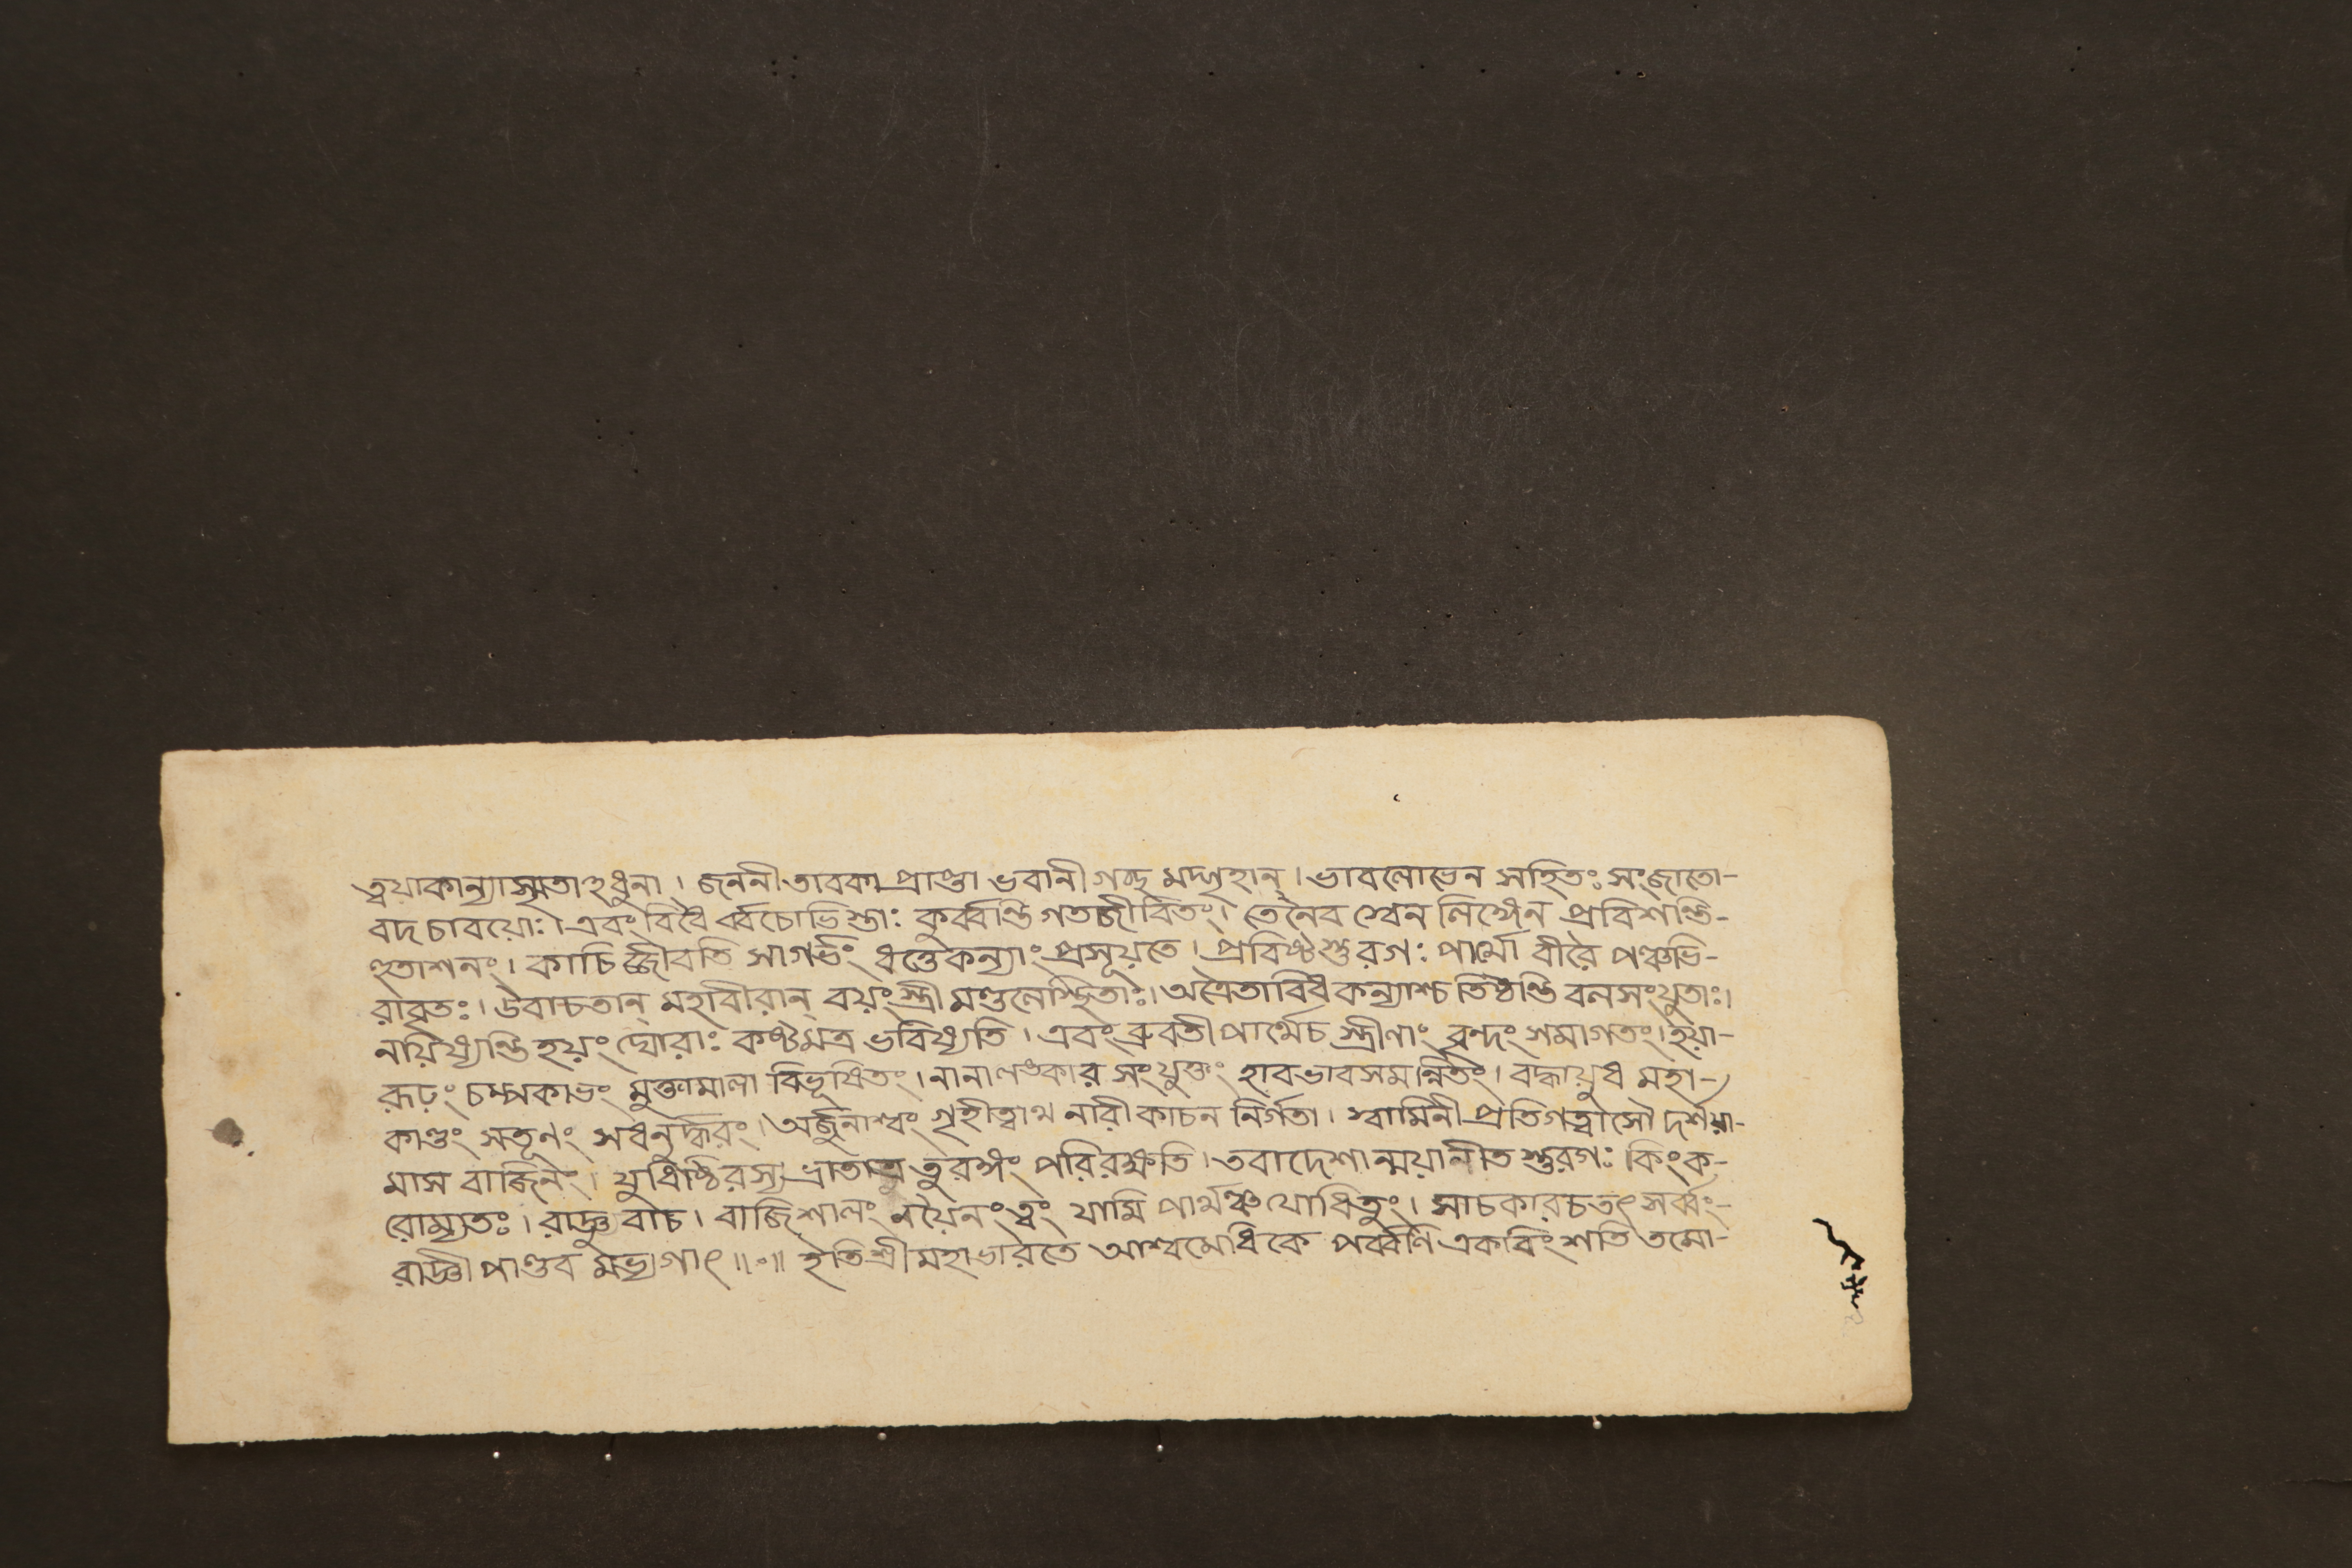 ত্বয়াকান্যাস্মৃতাঽধুনা । জননীতাবকাপ্রাপ্তা ভবানীগচ্ছ মদ্গৃহান্ । ভাবলোভেন সহিতঃ সংজাতো-
বদ চাবয়োঃ । এবং বিধৈ র্ব্বচোভিস্তাঃ কুর্ব্বন্তি গতজীবিতং । তেনৈব শ্বেন লিঙ্গেন প্রবিশন্তি-
হুতাশনং । কাচিজ্জীবতি সাগর্ভং ধত্তেকন্যাং প্রসূয়তে । প্রবিষ্টস্তুরগঃ পার্থো বীরৈ পঞ্চভি-
রাবৃতঃ । উবাচতান্ মহাবীরান্ বয়ং স্ত্রীমণ্ডলেস্থিতাঃ । অত্রৈতাবিষকন্যাশ্চ তিষ্ঠন্তি বলসংযুতাঃ ।
নয়িষ্যন্তি হয়ং ঘোরাঃ কষ্টমত্র ভবিষ্যতি । এবং ব্রুবতী পার্থেচ স্ত্রীণাং বৃন্দং সমাগতং । হয়া-
রূঢ়ং চম্পকাভং মুক্তামালা বিভূষিতং । নানালঙ্কার সংযুক্তং হাবভাবসমন্নিতং । বদ্ধায়ুধ মহা-
কাণ্ডং সতূণং সধনুর্দ্ধরং । অর্জুনাশ্বং গৃহীত্বাথ নারী কাচন নির্গতা । স্বামিনী প্রতিগত্বাসৌ দর্শয়া-
মাস বাজিনং । যুধিষ্ঠিরস্য ভ্রাতাত্র তুরঙ্গং পরিরক্ষতি । তবাদেশান্ময়ানীত স্তুরগঃ কিংক-
রোম্যতঃ । রাজ্ঞু বাচ । বাজিশালং নয়ৈনংত্বং যামি পার্থঞ্চ যোধিতুং । সাচকারচতৎ সর্ব্বং-
রাজ্ঞী পাণ্ডব মভ্যগাৎ ॥ ০ ॥ ইতি শ্রীমহাভারতে আশ্বমেধিকে পর্ব্বণি একবিংশতি তমো-